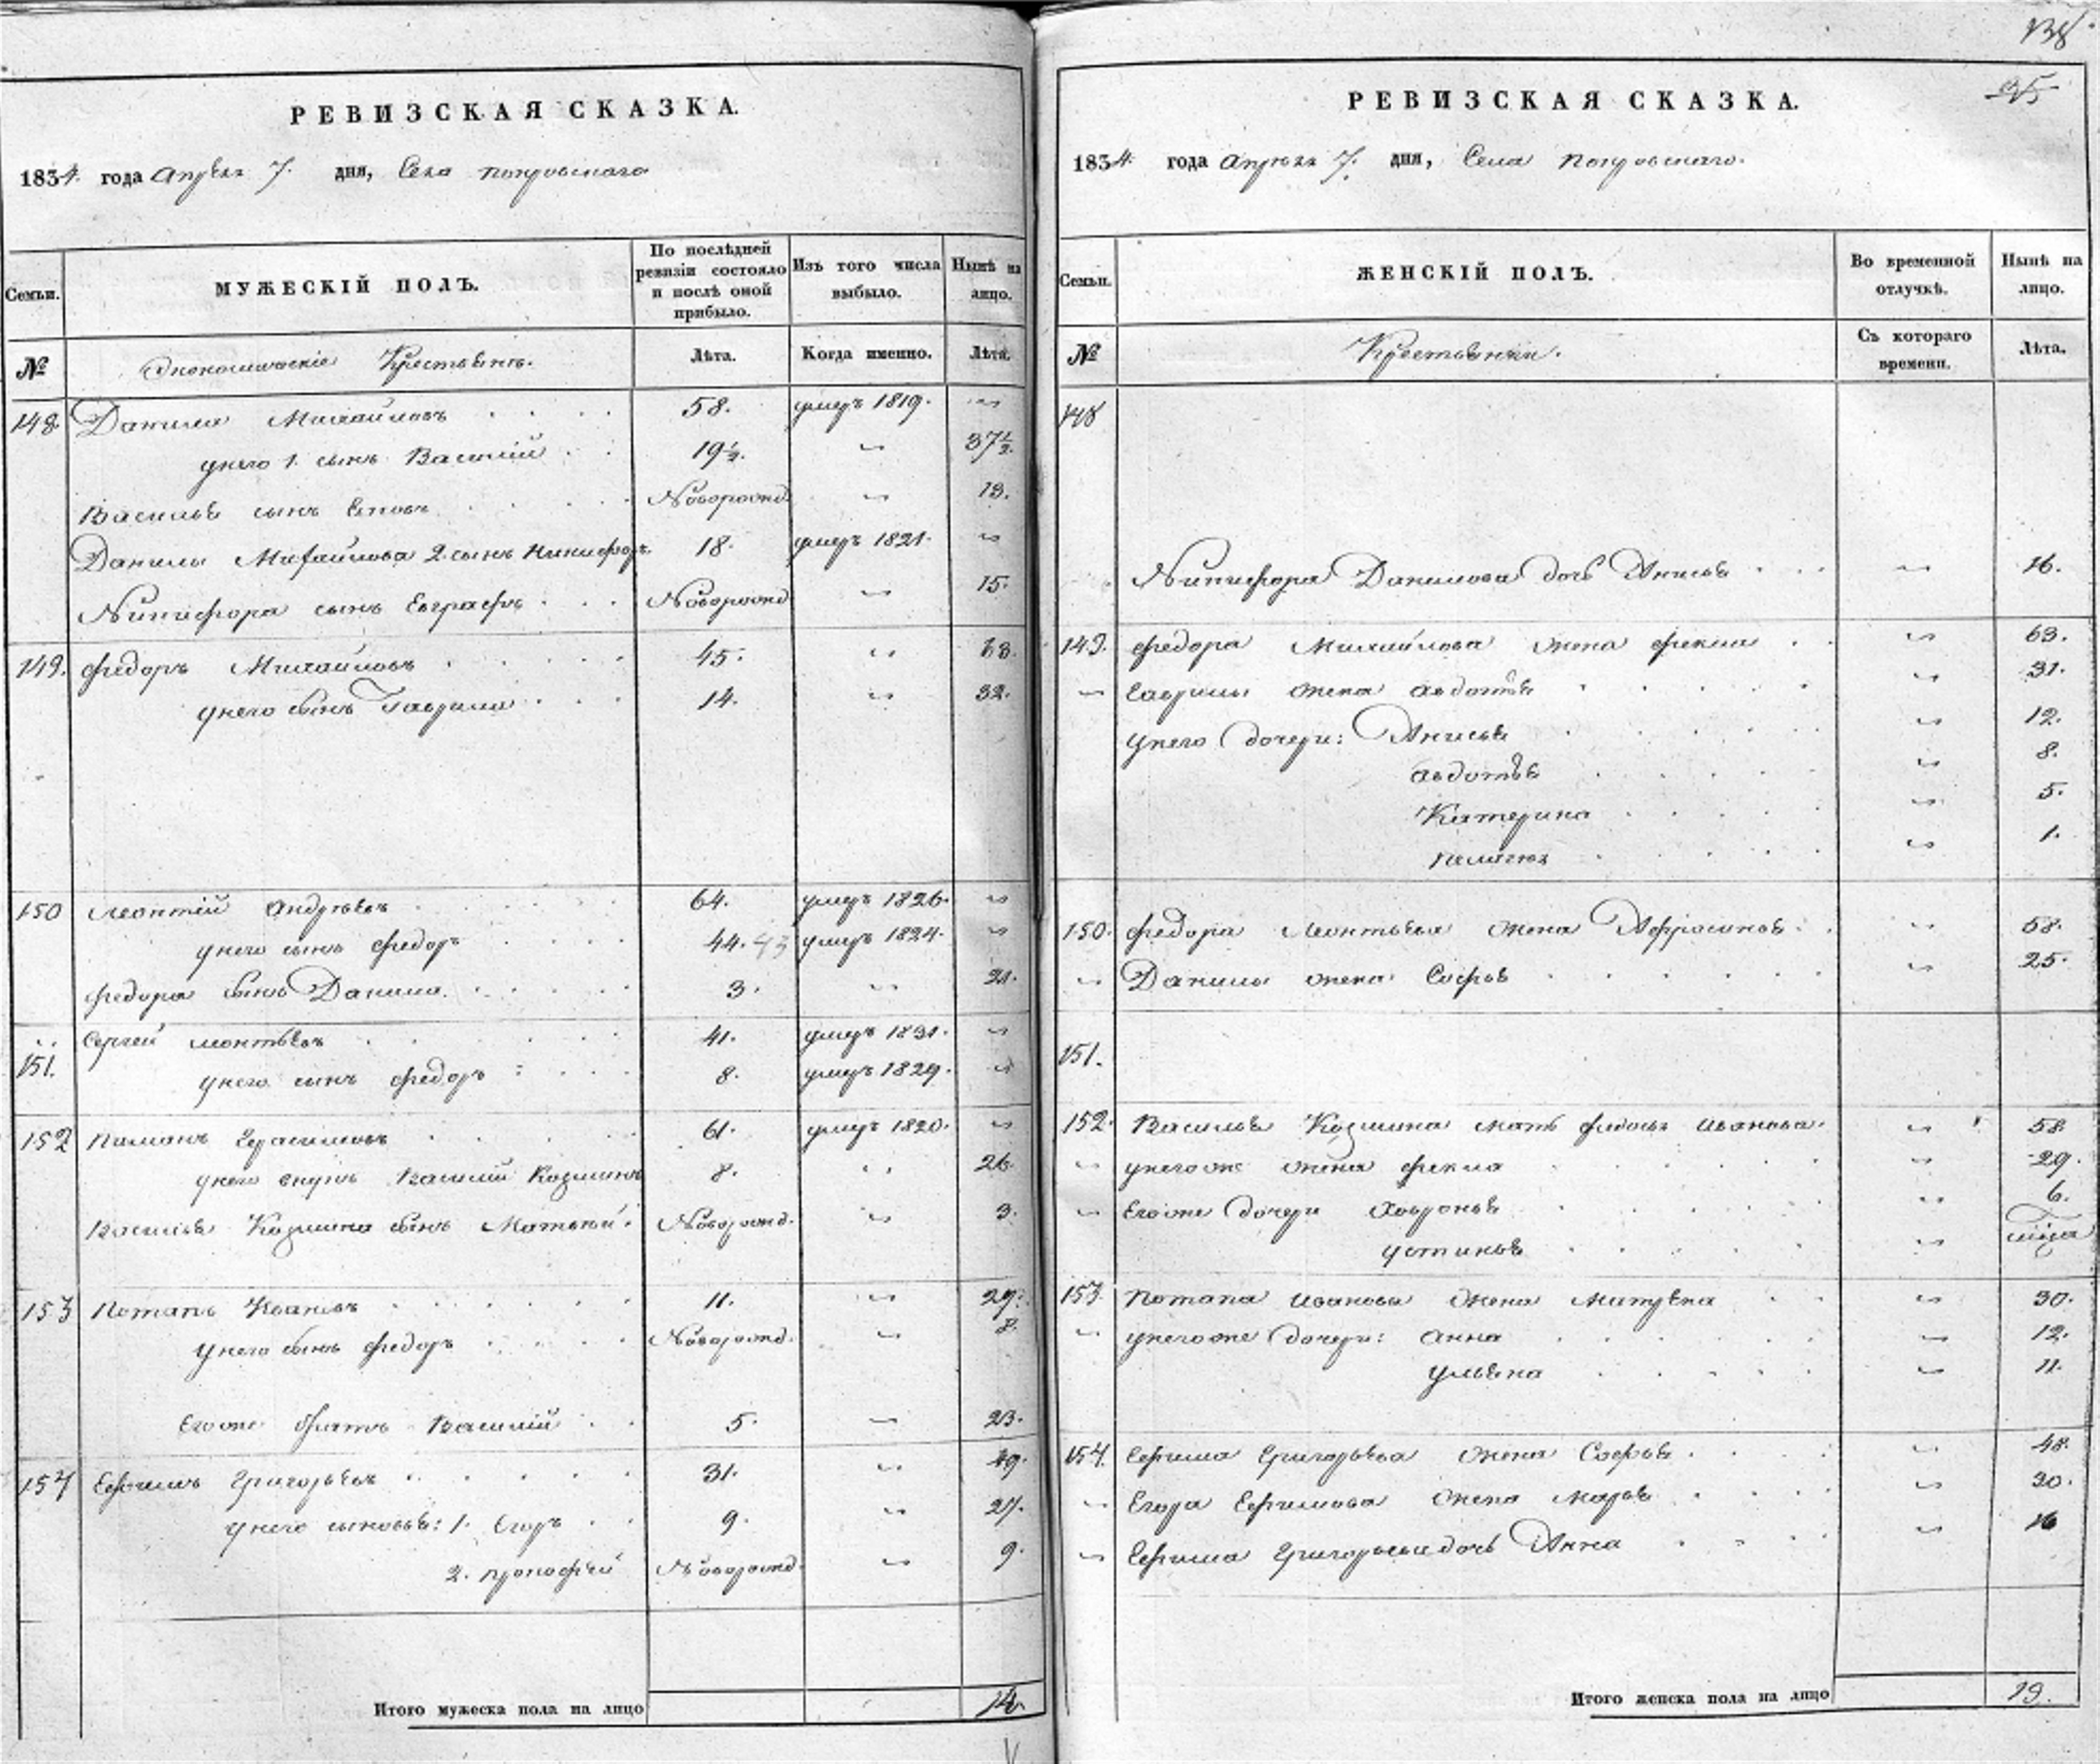 138
95
РЕВИЗСКАЯ СКАЗКА.
1834 года Апреля 7. дня, Села Покровскаго
Семьи. МУЖЕСКІЙ ПОЛЪ. По послѣдней ревизіи состояло и послѣ оной прибыло. Изъ того числа выбыло. Нынѣ на лицо.
№ Экономическіе Крестьяне. Лѣта. Когда именно. Лѣта.
148 Данила Михайловъ 58. умеръ 1819. "
у него 1. сынъ Василій 19½. " 37½.
Василья сынъ Новорожд. " 13.
Данилы Михайлова 2. сынъ Никифоръ 18. умеръ 1821. "
Никифора сынъ Евграфъ Новорожд " 15.
149. Федоръ Михайловъ 45. " 63.
у него сынъ Гаврила 14. " 32.
150 Леонтій Андреевъ 64. умеръ 1826. "
у него сынъ Федоръ 44. 43 умеръ 1824. "
Федора сынъ Данила 3. " 21.
151. Сергей Леонтьевъ 41. умеръ 1831. "
у него сынъ Федоръ 8. умеръ 1829. "
152 Пиманъ Герасимовъ 61. умеръ 1820. "
у него внукъ Василій Козминъ 8. " 26.
Василья Козмина сынъ Матвей Новорожд. " 3.
153 Потапъ Ивановъ 11. " 29.
у него сынъ Федоръ Новорожд. " 8.
Его же братъ Василій 5. " 23.
154 Ефимъ Григорьевъ 31. " 49.
у него сыновья: 1. Егоръ 9. " 27.
2. Прокофей Новорожд. " 9.
Итого мужеска пола на лицо 14.
РЕВИЗСКАЯ СКАЗКА.
1834 года Апреля 7. дня, Села Покровскаго.
Семьи. ЖЕНСКІЙ ПОЛЪ. Во временной отлучкѣ. Нынѣ на лицо.
№ Крестьянки. Съ котораго времени. Лѣта.
148
Никифора Данилова дочь Анисья " 16.
149. Федора Михайлова жена Фекла " 63.
" Гаврилы жена Авдотья " 31.
У него дочери: Анисья " 12.
Авдотья " 8.
Катерина " 5.
Пелагея " 1.
150. Федора Леонтьева жена Афросинья " 58.
" Данилы жена Софья " 25.
151.
152. Василья Козмина мать Федосья Иванова " 58.
" у него же жена Фекла " 29.
" Его же дочери Ховронья " 6.
Устинья "
153. Потапа Иванова жена Матрена " 30.
" у него же дочери: Анна " 12.
Ульяна " 11.
154. Ефима Григорьева жена Софья " 48.
" Егора Ефимова жена Марья " 30.
" Ефима Григорьева дочь Анна " 16
Итого женска пола на лицо 19.